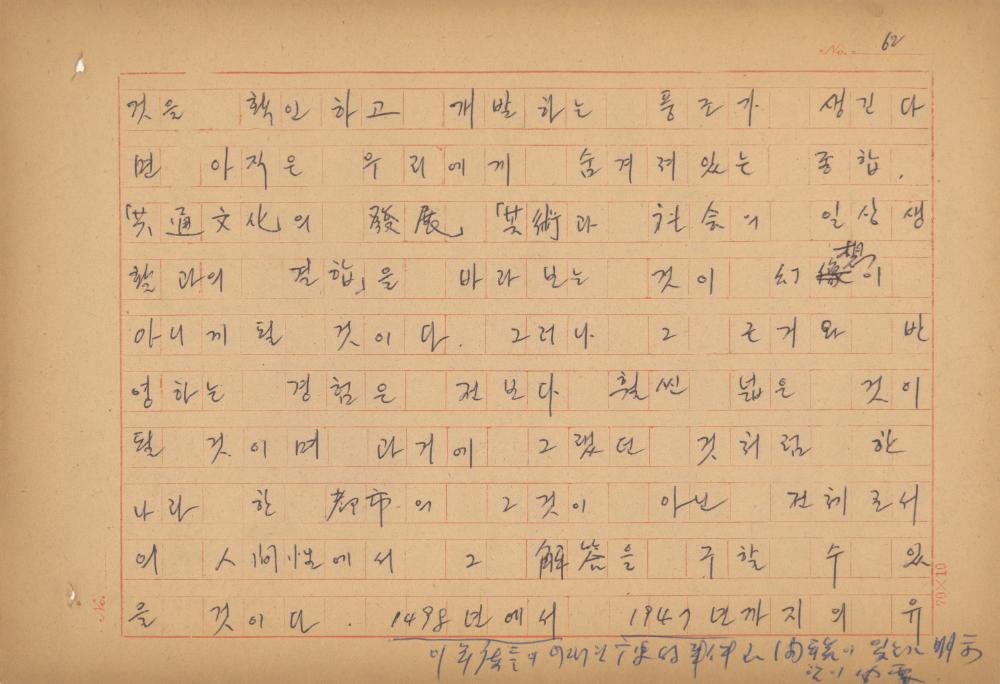 No. 62
것을 확인하고 개발하는 풍조가 생긴다
면 아직은 우리에게 숨겨져있는 종합.
「共通文化의 發展」「芸術과 社会의 일상생
활과의 결합」을 바라보는 것이 幻想이
아니게 될 것이다. 그러나 그 근거와 반
영하는 경험은 전보다 훨씬 넓은 것이
될 것이며 과거에 그랬던 것처럼 한
나라 한 都市의 그것이 아닌 전체로서
의 人間性에서 그 解答을 구할 수 있
을 것이다. 1498년에서 1947년까지의 유
이 年代들의 어떠한
No.
20×10